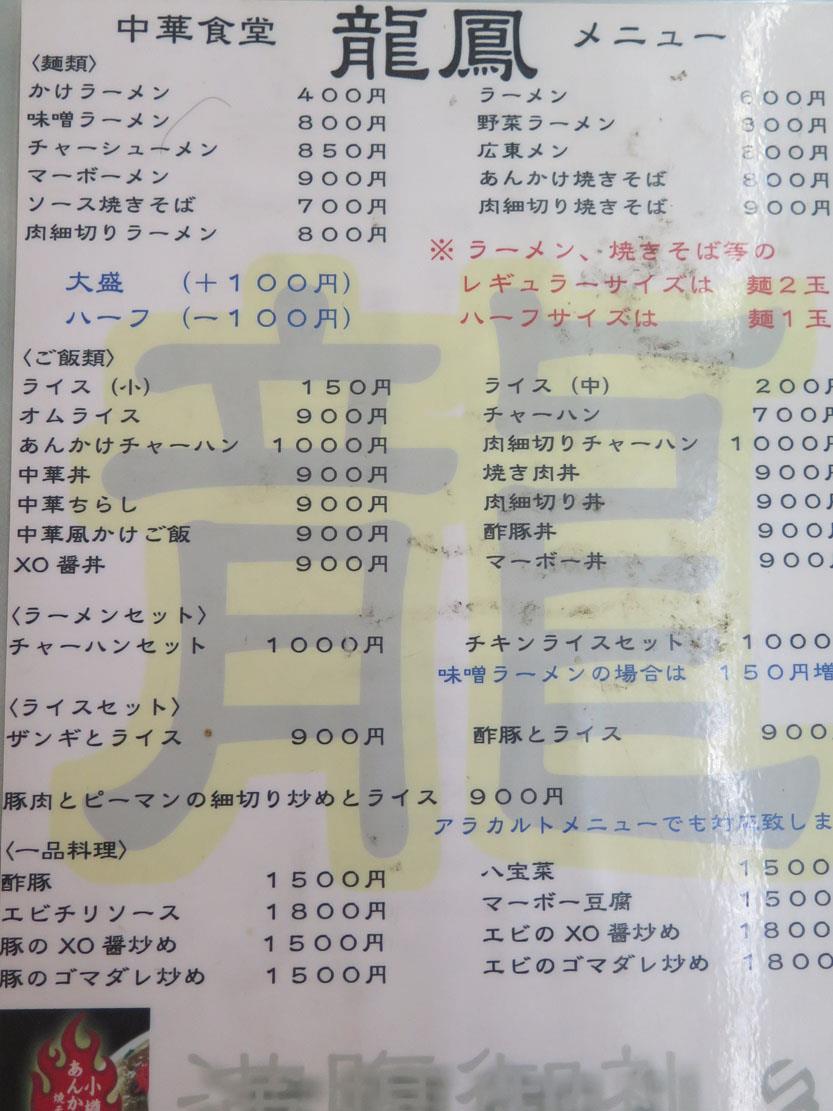 中華食堂 龍鳳 メニュー
〈麺類〉
かけラーメン ４００円 ラーメン ６００円
味噌ラーメン ８００円 野菜ラーメン ８００円
チャーシューメン ８５０円 広東メン ８００円
マーボーメン ９００円 あんかけ焼きそば ８００円
ソース焼きそば ７００円 肉細切り焼きそば ９００円
肉細切りラーメン ８００円
※ ラーメン、焼きそば等の
大盛 （＋１００円） レギュラーサイズは 麺２玉
ハーフ （－１００円） ハーフサイズは 麺１玉
〈ご飯類〉
ライス（小） １５０円 ライス（中） ２００円
オムライス ９００円 チャーハン ７００円
あんかけチャーハン １０００円 肉細切りチャーハン １０００円
中華丼 ９００円 焼き肉丼 ９００円
中華ちらし ９００円 肉細切り丼 ９００円
中華風かけご飯 ９００円 酢豚丼 ９００円
XO醤丼 ９００円 マーボー丼 ９００円
〈ラーメンセット〉
チャーハンセット １０００円 チキンライスセット １０００
味噌ラーメンの場合は １５０円増
〈ライスセット〉
ザンギとライス ９００円 酢豚とライス ９００
豚肉とピーマンの細切り炒めとライス ９００円
アラカルトメニューでも対応致しま
〈一品料理〉
酢豚 １５００円 八宝菜 １５００
エビチリソース １８００円 マーボー豆腐 １５００
豚のXO醤炒め １５００円 エビのXO醤炒め １８００
豚のゴマダレ炒め １５００円 エビのゴマダレ炒め １８００
満腹御礼
小樽
あんか
焼き